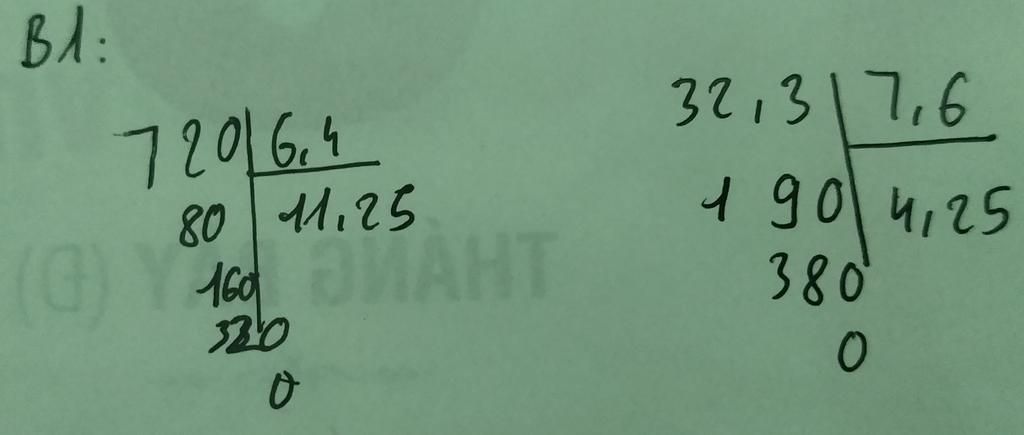 B1:
720 6,4
80 11,25
160
320
0
32,3 7,6
190 4,25
380
0
THÁNG
(Đ)